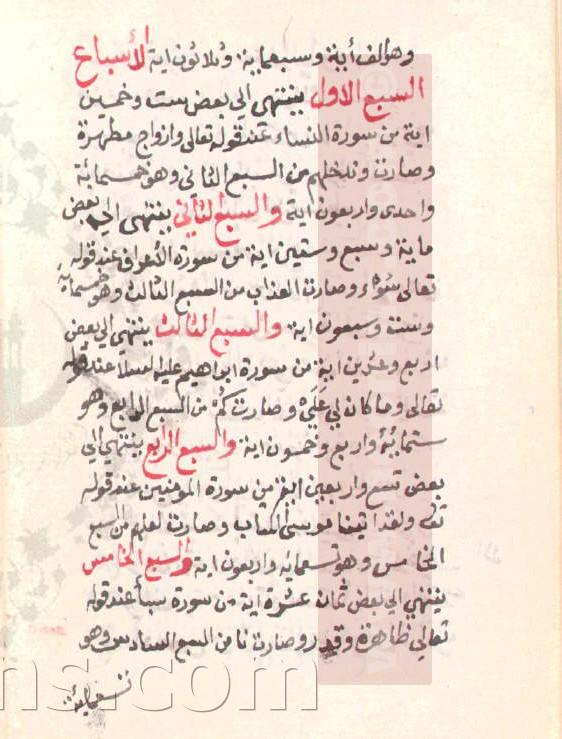 وهو ألف أية وسبعماية وثلاثون اية الأسباع
السبع الاول ينتهي الي بعض ست وخمسين
اية من سورة النساء عند قوله تعالى وازواج مطهرة
وصارت وندخلهم من السبع الثاني وهو خمسمائة
واحدى واربعون اية والسبع الثاني ينتهي الى بعض
ماية وسبع وستين اية من سورة الأعراف عند قوله
تعالى سوء وصارت العذاب من السبع الثالث وهو خمسماية
وست وسبعون اية والسبع الثالث ينتهي الى بعض
اربع وعشرين اية من سورة ابراهيم عليه السلام عند قوله
تعالى وما كان لي علي وصارت كم من السبع الرابع وهو
ستماية واربع وخمسون اية والسبع الرابع ينتهي الي
بعض تسع واربعين اية من سورة المؤمنين عند قوله
تعالى ولقد اتينا موسى الكتاب وصارت لعلهم من السبع
الخامس وهو تسعمائة واربعون اية والسبع الخامس
ينتهي الي بعض ثمان عشرة اية من سورة سبأ عند قوله
تعالي ظاهرة وقدر وصارت نا من السبع السادس وهو
تسعمائة
ns.com